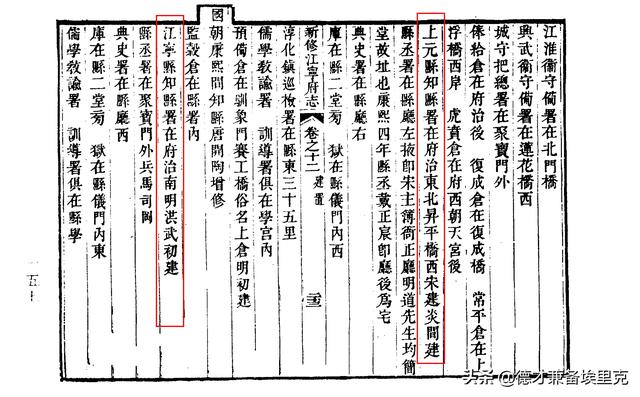 江淮衞守備署在北門橋
興武衞守備署在蓮花橋西
城守把總署在聚寶門外
俸給倉在府治後　復成倉在復成橋　常平倉在上
浮橋西岸　虎賁倉在府西朝天宮後
上元縣知縣署在府治東北昇平橋西宋建炎間建
縣丞署在縣廳左掖卽宋主簿衙正廳明道先生均簡
堂故址也康熙四年縣丞戴正宸卽廳後爲宅
典史署在縣廳右
庫在縣二堂旁　獄在縣儀門內西
新修江寧府志　卷之十二　建置　三
淳化鎮巡檢署在縣東三十五里
儒學教諭署　訓導署俱在學宮內
預備倉在馴象門賽工橋俗名上倉明初建
國朝康熙間知縣唐開陶增修
監穀倉在縣署內
江寧縣知縣署在府治南明洪武初建
縣丞署在聚寶門外兵馬司
典史署在縣廳西
庫在縣二堂旁　獄在縣儀門內東
儒學教諭署　訓導署俱在縣學
五十
头条@德才兼备埃里克